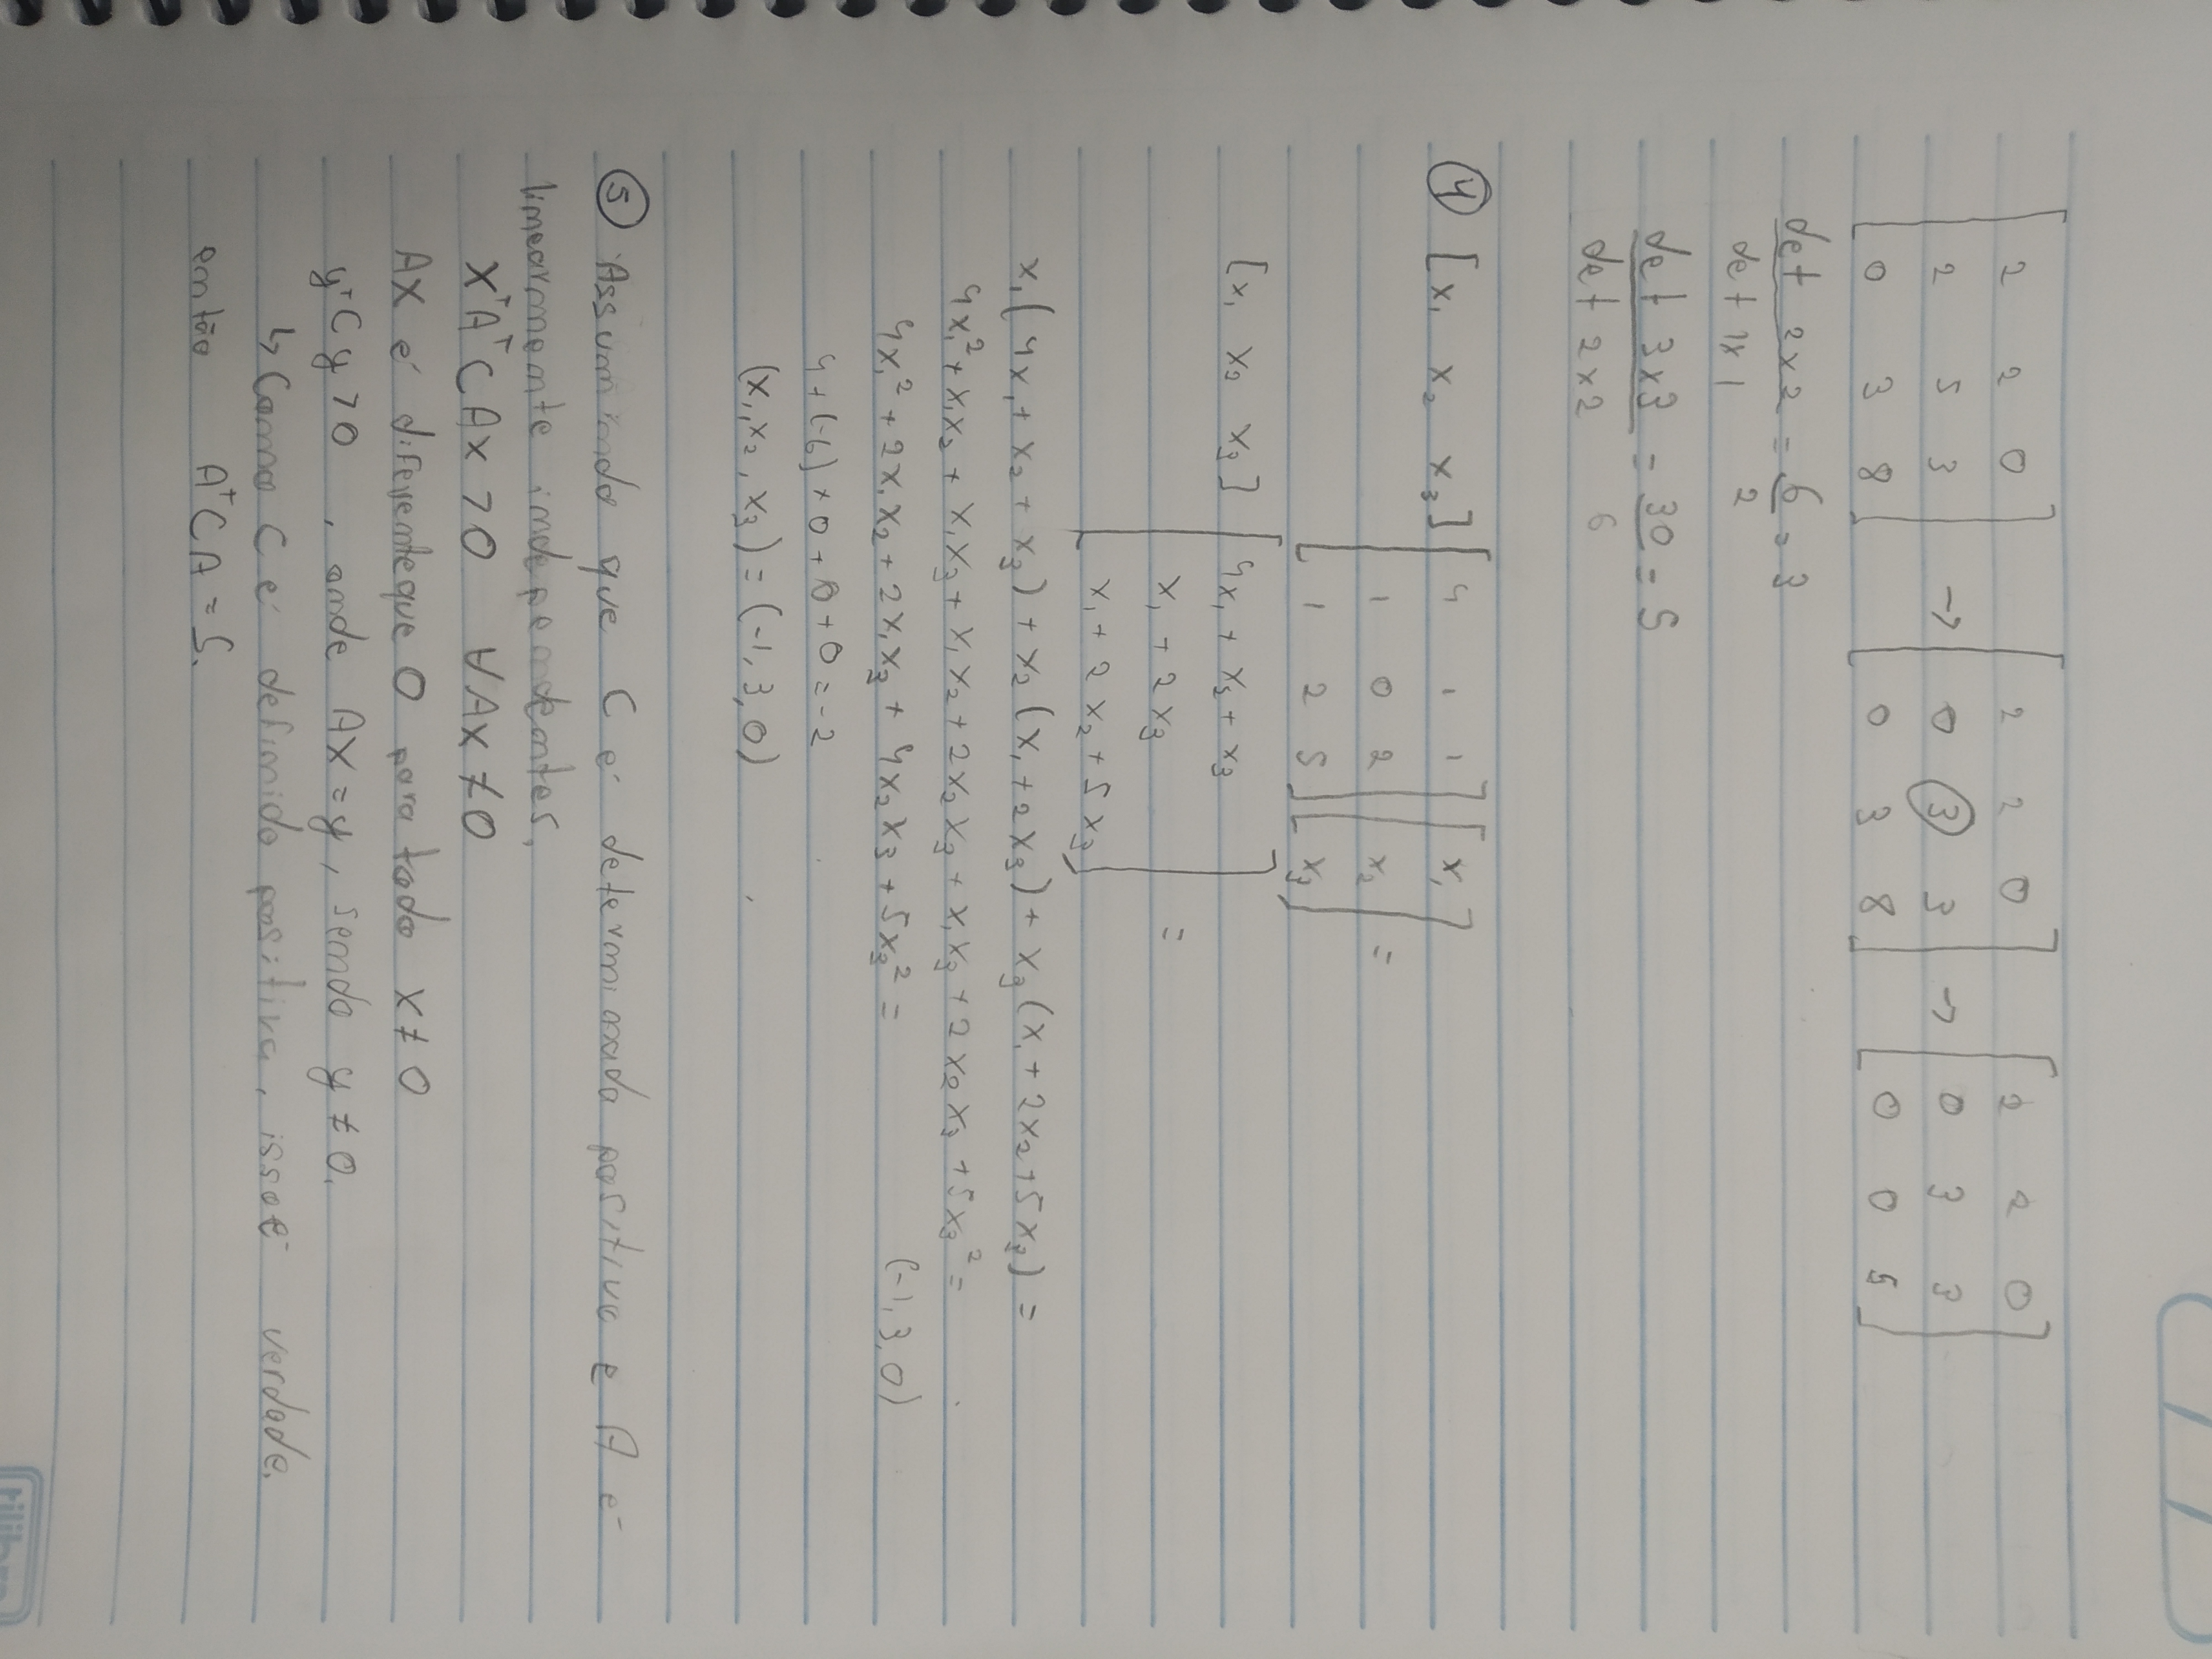 [2 2 0] → [2 2 0] → [2 2 0]
[2 5 3] [0 3 3] [0 3 3]
[0 3 8] [0 3 8] [0 0 5]
det 2x2 = 6 = 3
det 1x1 2
det 3x3 = 30 = 5
det 2x2 6
④ [x₁ x₂ x₃] [4 1 1] [x₁]
[1 0 2] [x₂] =
[1 2 5] [x₃]
[x₁ x₂ x₃] [4x₁ + x₂ + x₃]
[x₁ + 2x₃] =
[x₁ + 2x₂ + 5x₃]
x₁(4x₁ + x₂ + x₃) + x₂(x₁ + 2x₃) + x₃(x₁ + 2x₂ + 5x₃) =
4x₁² + x₁x₂ + x₁x₃ + x₁x₂ + 2x₂x₃ + x₁x₃ + 2x₂x₃ + 5x₃² =
4x₁² + 2x₁x₂ + 2x₁x₃ + 4x₂x₃ + 5x₃² = (-1, 3, 0)
4 + (-6) + 0 + 0 + 0 = -2
(x₁, x₂, x₃) = (-1, 3, 0)
⑤ Assumindo que C é determinada positivo e A é
linearmente independentes,
xᵀAᵀCAx > 0 ∀Ax ≠ 0
Ax é diferente que 0 para todo x ≠ 0
yᵀCy > 0, onde Ax = y, sendo y ≠ 0.
↳ Como C é definido positiva, isso é verdade.
então AᵀCA = S.
tilibra